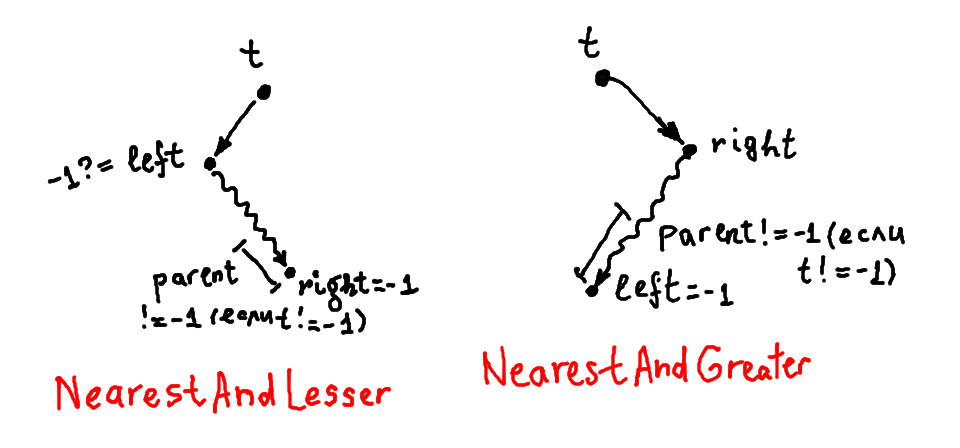 t
-1?= left
parent
!=-1 (если t!=-1)
right=-1
NearestAndLesser
t
right
parent!=-1 (если
t!=-1)
left=-1
NearestAndGreater